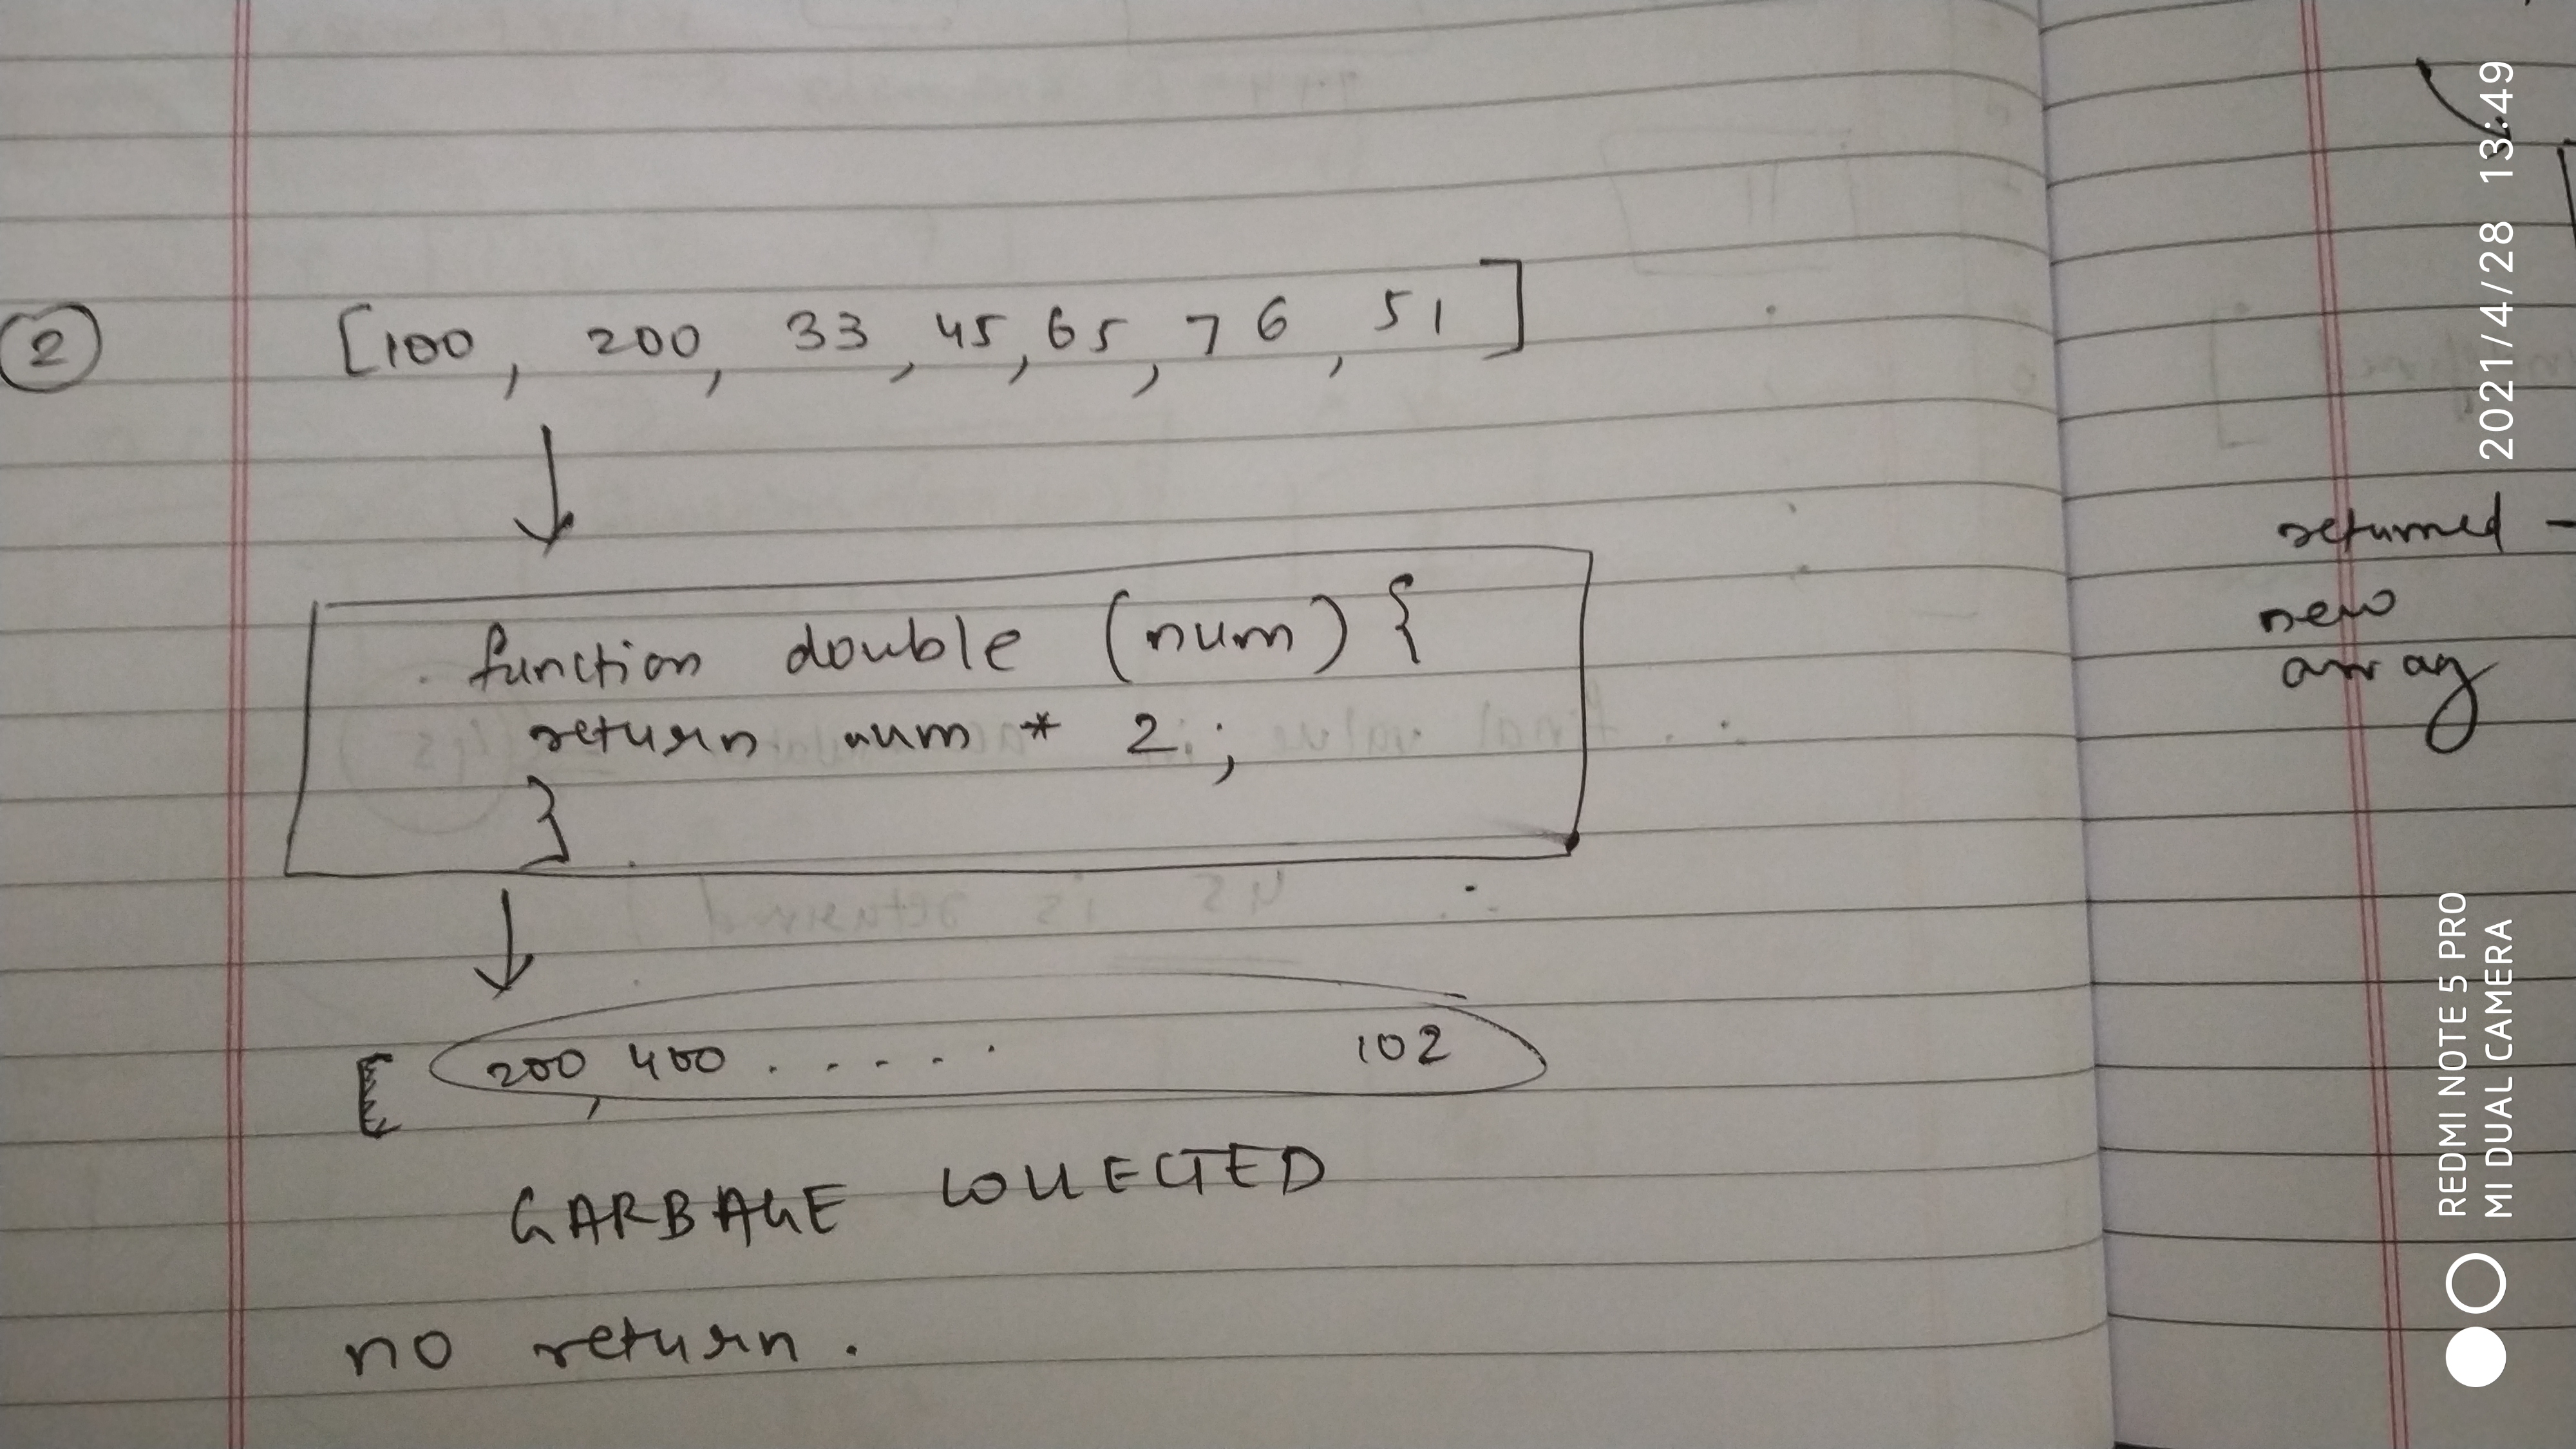 2 [100, 200, 33, 45, 65, 76, 51]
function double (num) {
return num * 2;
}
[ 200, 400 . . . . . 102
GARBAGE COLLECTED
no return.
returned -
new
array
2021/4/28 13:49
REDMI NOTE 5 PRO
MI DUAL CAMERA